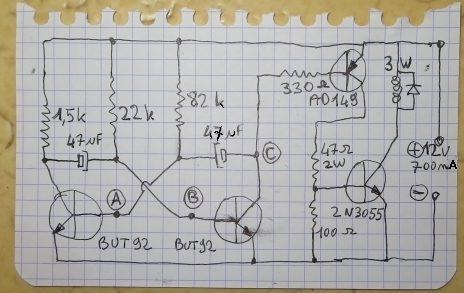 3 W
1,5k
22k
82k
330Ω
AD149
47µF
47µF
C
47Ω
2W
+ 12V
700mA
−
A
B
2N3055
100Ω
BUT92
BUT92